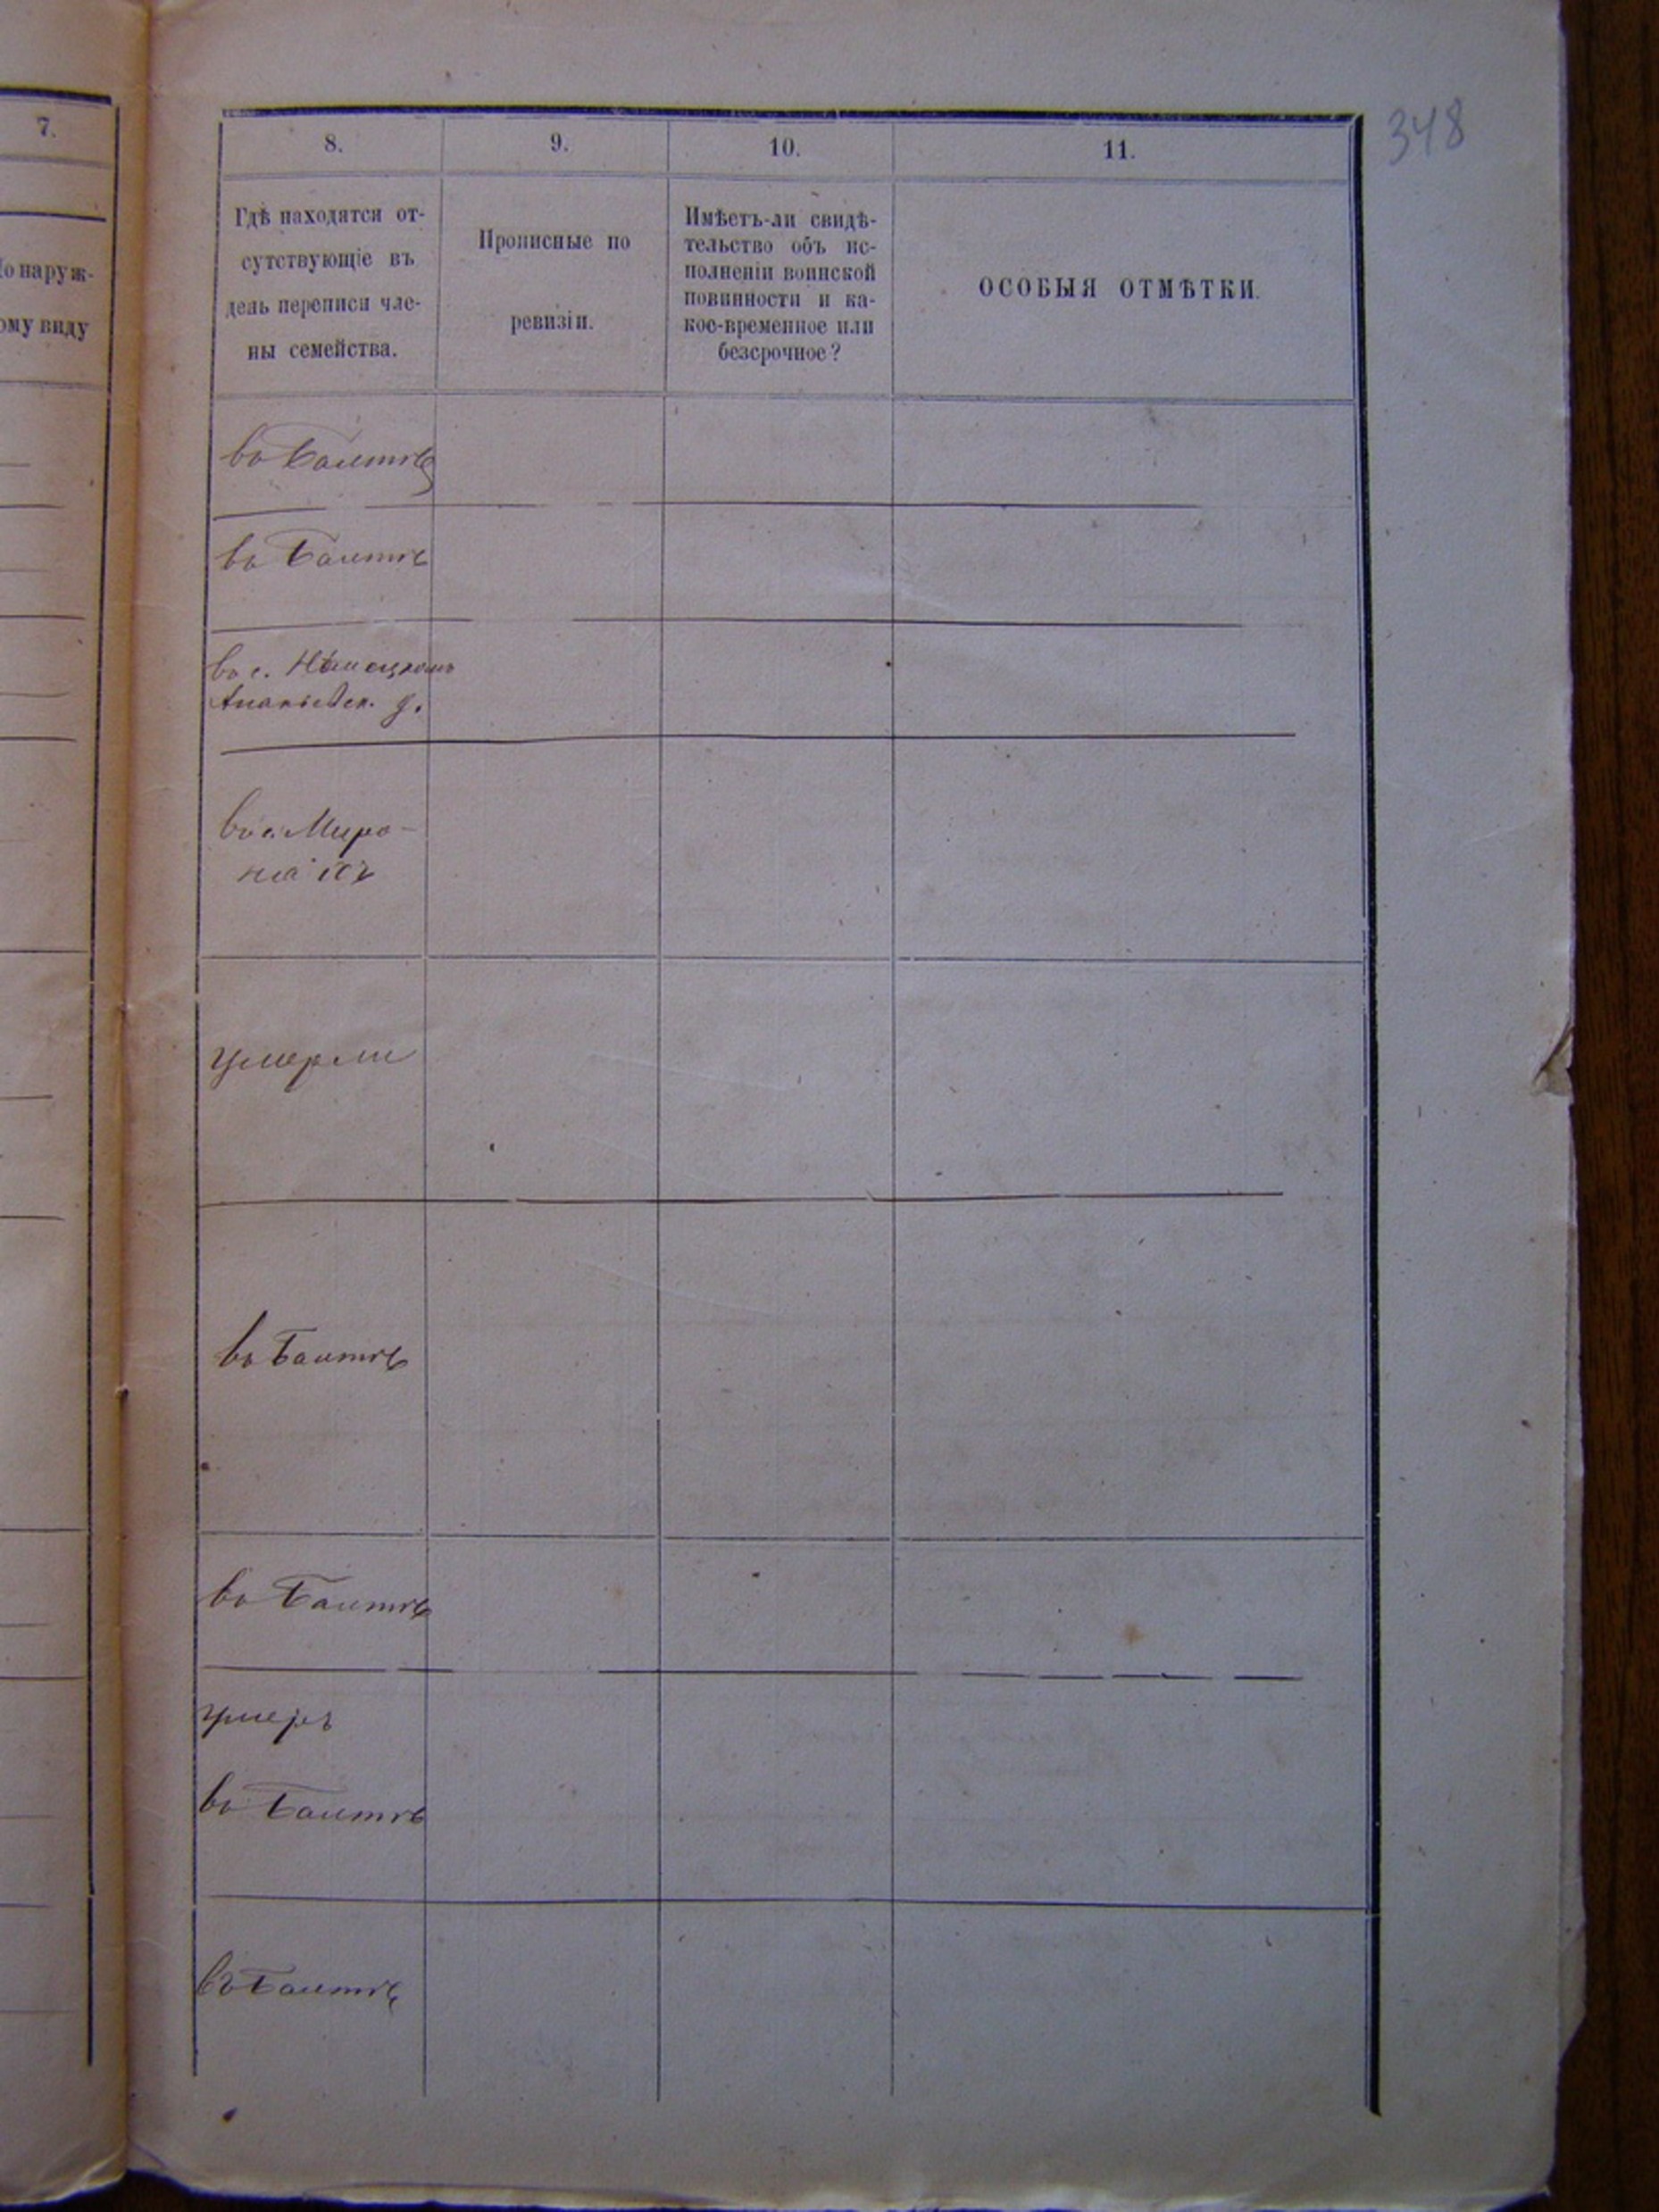 7.
8.
9.
10.
11.
348
о наруж-
ому виду
Гдѣ находятся от-
сутствующіе въ
день переписи чле-
ны семейства.
Прописные по
ревизіи.
Имѣетъ-ли свидѣ-
тельство объ ис-
полненіи воинской
повинности и ка-
кое-временное или
безсрочное?
ОСОБЫЯ ОТМѢТКИ.
въ Балтѣ
въ Балтѣ
въ с.
Ананьевск. у.
въ с. Миро-
умерли
въ Балтѣ
въ Балтѣ
умеръ
въ Балтѣ
въ Балтѣ